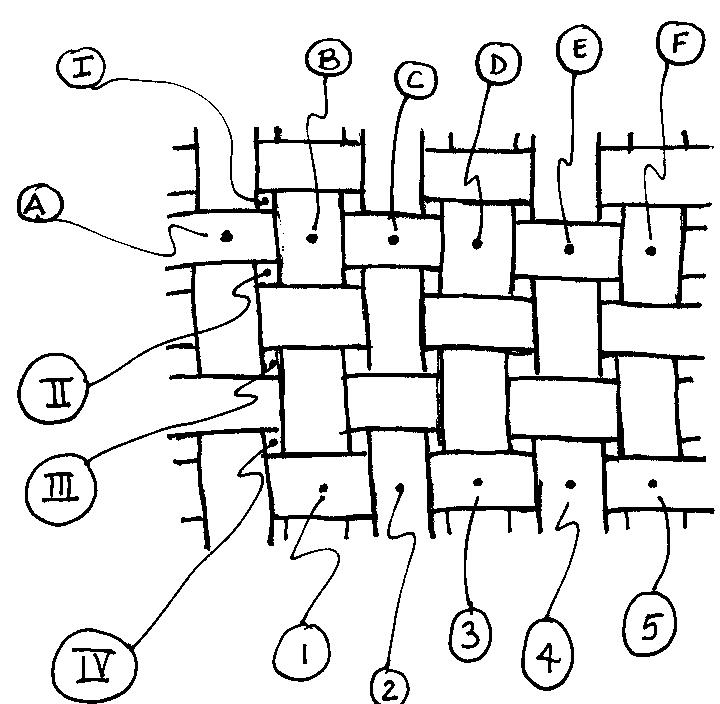 I
B
C
D
E
F
A
II
III
IV
1
2
3
4
5